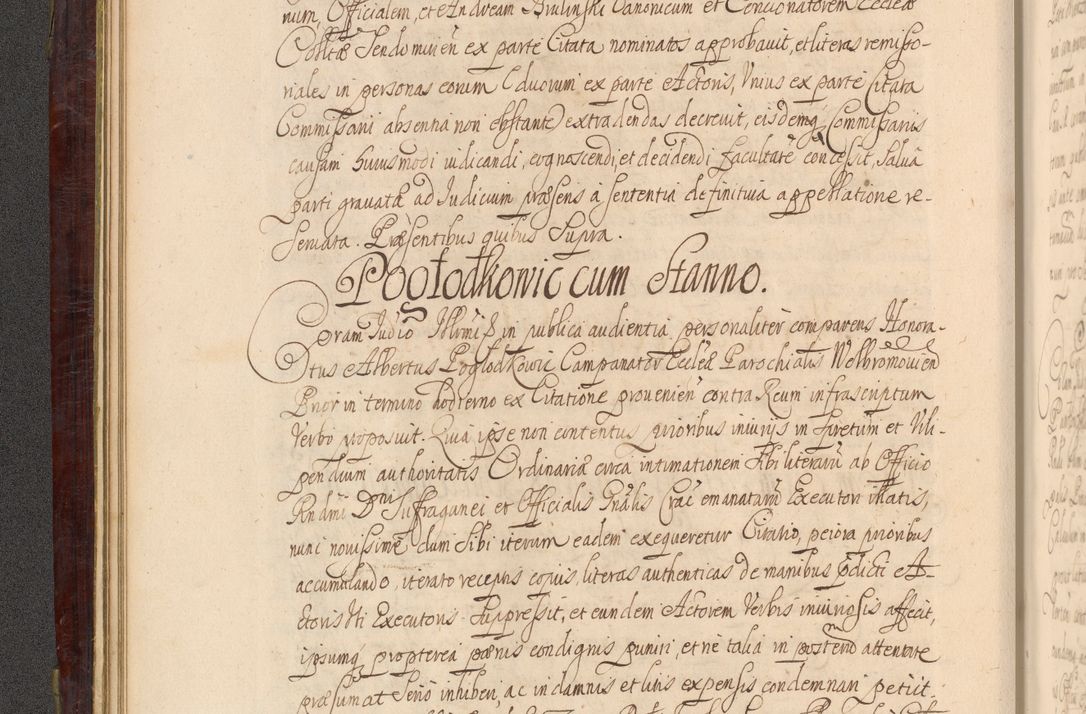 num, Officialem, et Andream Brulinski Canonicum et Concionatorem Ecclæ
Collæ Sendomirien ex parte Citata nominatos approbavit, et literas remisso-
riales in personas eorum (duorum ex parte Actoris, Unius ex parte Citata
Commissarii absentia non obstante) extradendas decrevit, eisdemq Commissariis
causam huiusmodi iudicandi, cognoscendi, et decidendi facultatē concessit, Salva
parti gravatæ ad Iudicium præsens à sententia definitiva appellatione re-
servata. Præsentibus quibus Supra.
Pogłodkowic cum Stanno.
Coram Iudio Illrmi & in publica audientia personaliter comparens Honora-
tus Albertus Pogłodkowic Campanator Ecclæ Parochialis Wolbromovien
Prior in termino hodierno ex Citatione provenien contra Reum infrascriptum
Verbo proposuit. Quia ipse non contentus prioribus iniuriis in spretum et Vili-
pendium authoritatis Ordinariæ circa intimationem Sibi literarū ab Officio
Rndmi Dni Suffraganei et Officialis Gnalis Crac emanatarū Executori illatis,
nunc novissimē dum Sibi iterum eadem exequeretur Citatio, peiora prioribus
accumulando, iterato receptis copiis, literas authenticas de manibus pdicti A-
ctoris Uti Executoris Suppressit, et eundem Actorem Verbis iniuriosis affecit,
ipsumq propterea pœnis condignis puniri, et ne talia in posterū attentare
præsumat Seriò inhiberi, ac in damnis et litis expensis condemnari petiit.